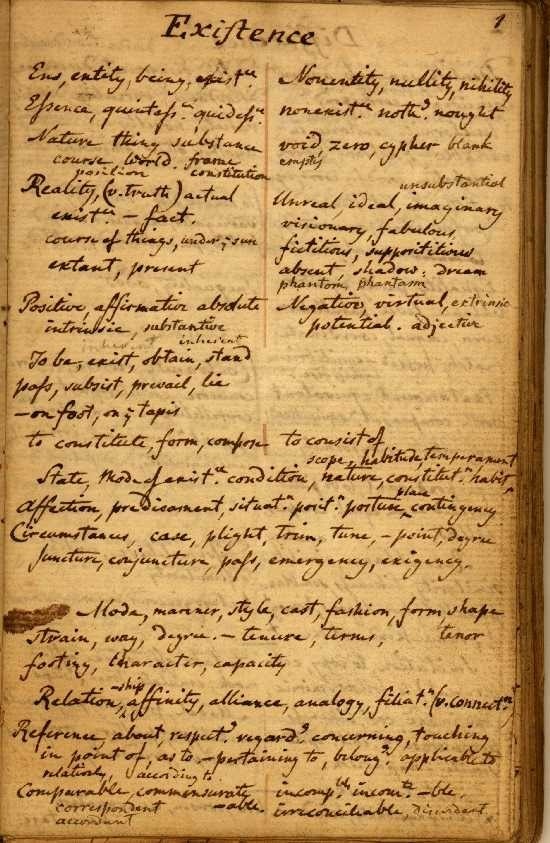 1
Existence
Ens, entity, being, existce
Nonentity, nullity, nihility
Essence, quintessce, quidessce
nonexistce nothg nought
Nature thing substance
void, zero, cypher blank
course, world. frame
empty
position constitution
unsubstantial
Reality, (v. truth) actual
Unreal, ideal, imaginary
existce – fact.
visionary, fabulous,
course of things, under ye sun
fictitious, supposititious
extant, present
absent, shadow: dream
phantom, phantasm
Positive, affirmative absolute
Negative, virtual, extrinsic
intrinsic, substantive
potential. adjective
inherent
To be, exist, obtain, stand
pass, subsist, prevail, lie
– on foot, on ye tapis
to constitute, form, compose
to consist of
scope, habitude, temperament
State, Mode of existce condition, nature, constitutn habit
Affection, predicament, situatn positn posture, contingency
place
Circumstances, case, plight, trim, tune, – point, degree
Juncture, conjuncture, pass, emergency, exigency.
Mode, manner, style, cast, fashion, form, shape
Strain, way, degree. – tenure, terms, tenor
footing, character, capacity
Relation, -ship affinity, alliance, analogy, filiatn (v. connectn)
Reference about, respectg regardg concerning, touching
in point of, as to – pertaining to, belongg applicable to
relatively, according to
Comparable, commensurate
incompble incomte -ble,
correspondent
-able.
irreconcilable, discordant
accordant